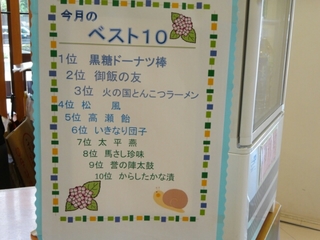 今月の
ベスト10
1位 黒糖ドーナツ棒
2位 御飯の友
3位 火の国とんこつラーメン
4位 松 風
5位 高 瀬 飴
6位 いきなり団子
7位 太 平 燕
8位 馬さし珍味
9位 誉の陣太鼓
10位 からしたかな漬